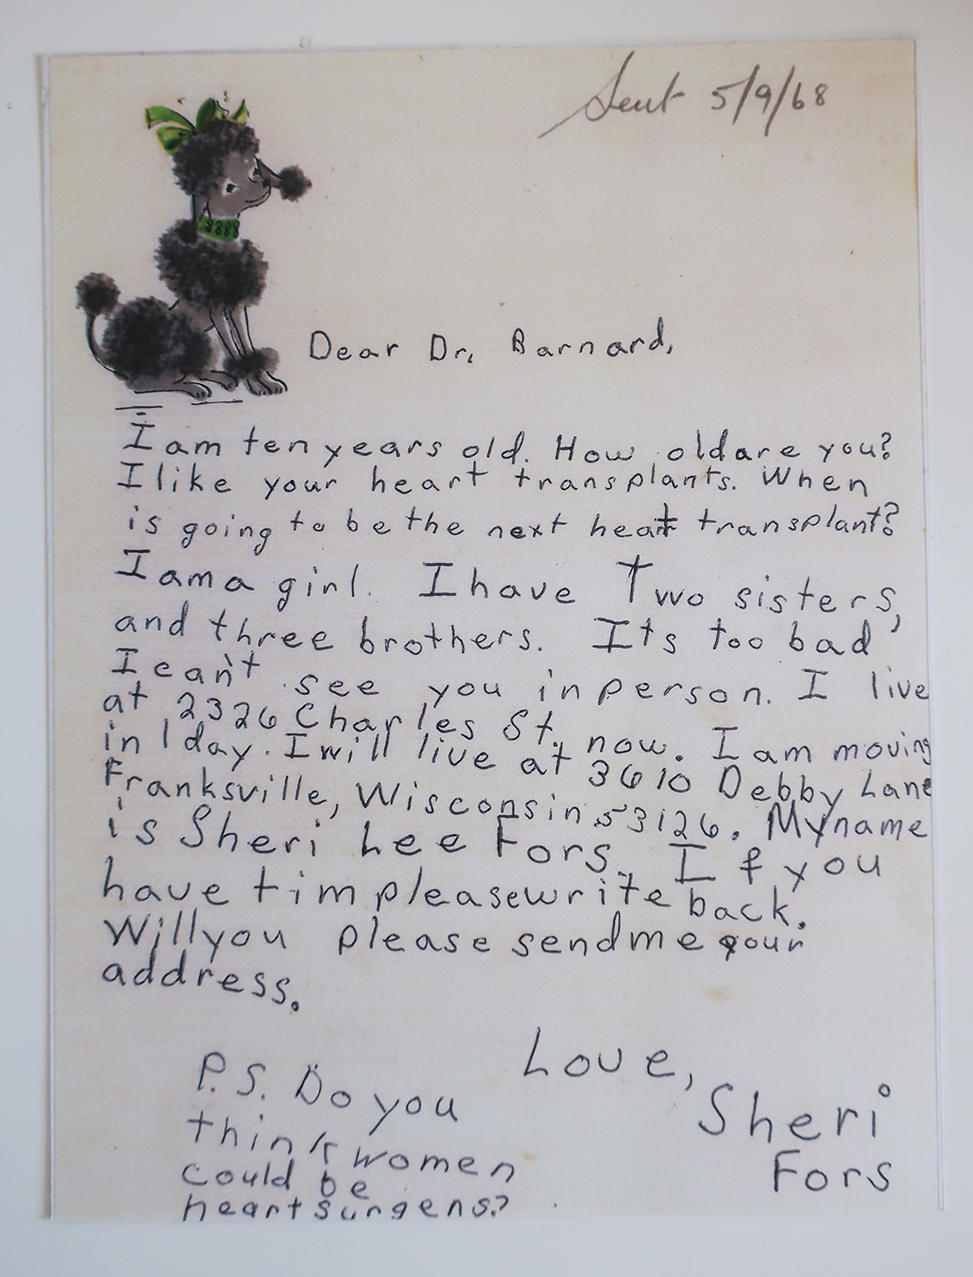 Sent 5/9/68
Dear Dr. Barnard,
I am ten years old. How old are you?
I like your heart transplants. When
is going to be the next heart transplant?
I am a girl. I have Two sisters,
and three brothers. Its too bad
I can't see you in person. I live
at 2326 Charles St. now. I am moving
in 1 day. I will live at 3610 Debby Lane
Franksville, Wisconsin 53126. My name
is Sheri Lee Fors. If you
have tim please write back.
Will you please send me your
address.
Love,
Sheri
Fors
P.S. Do you
think women
could be
heart surgens?